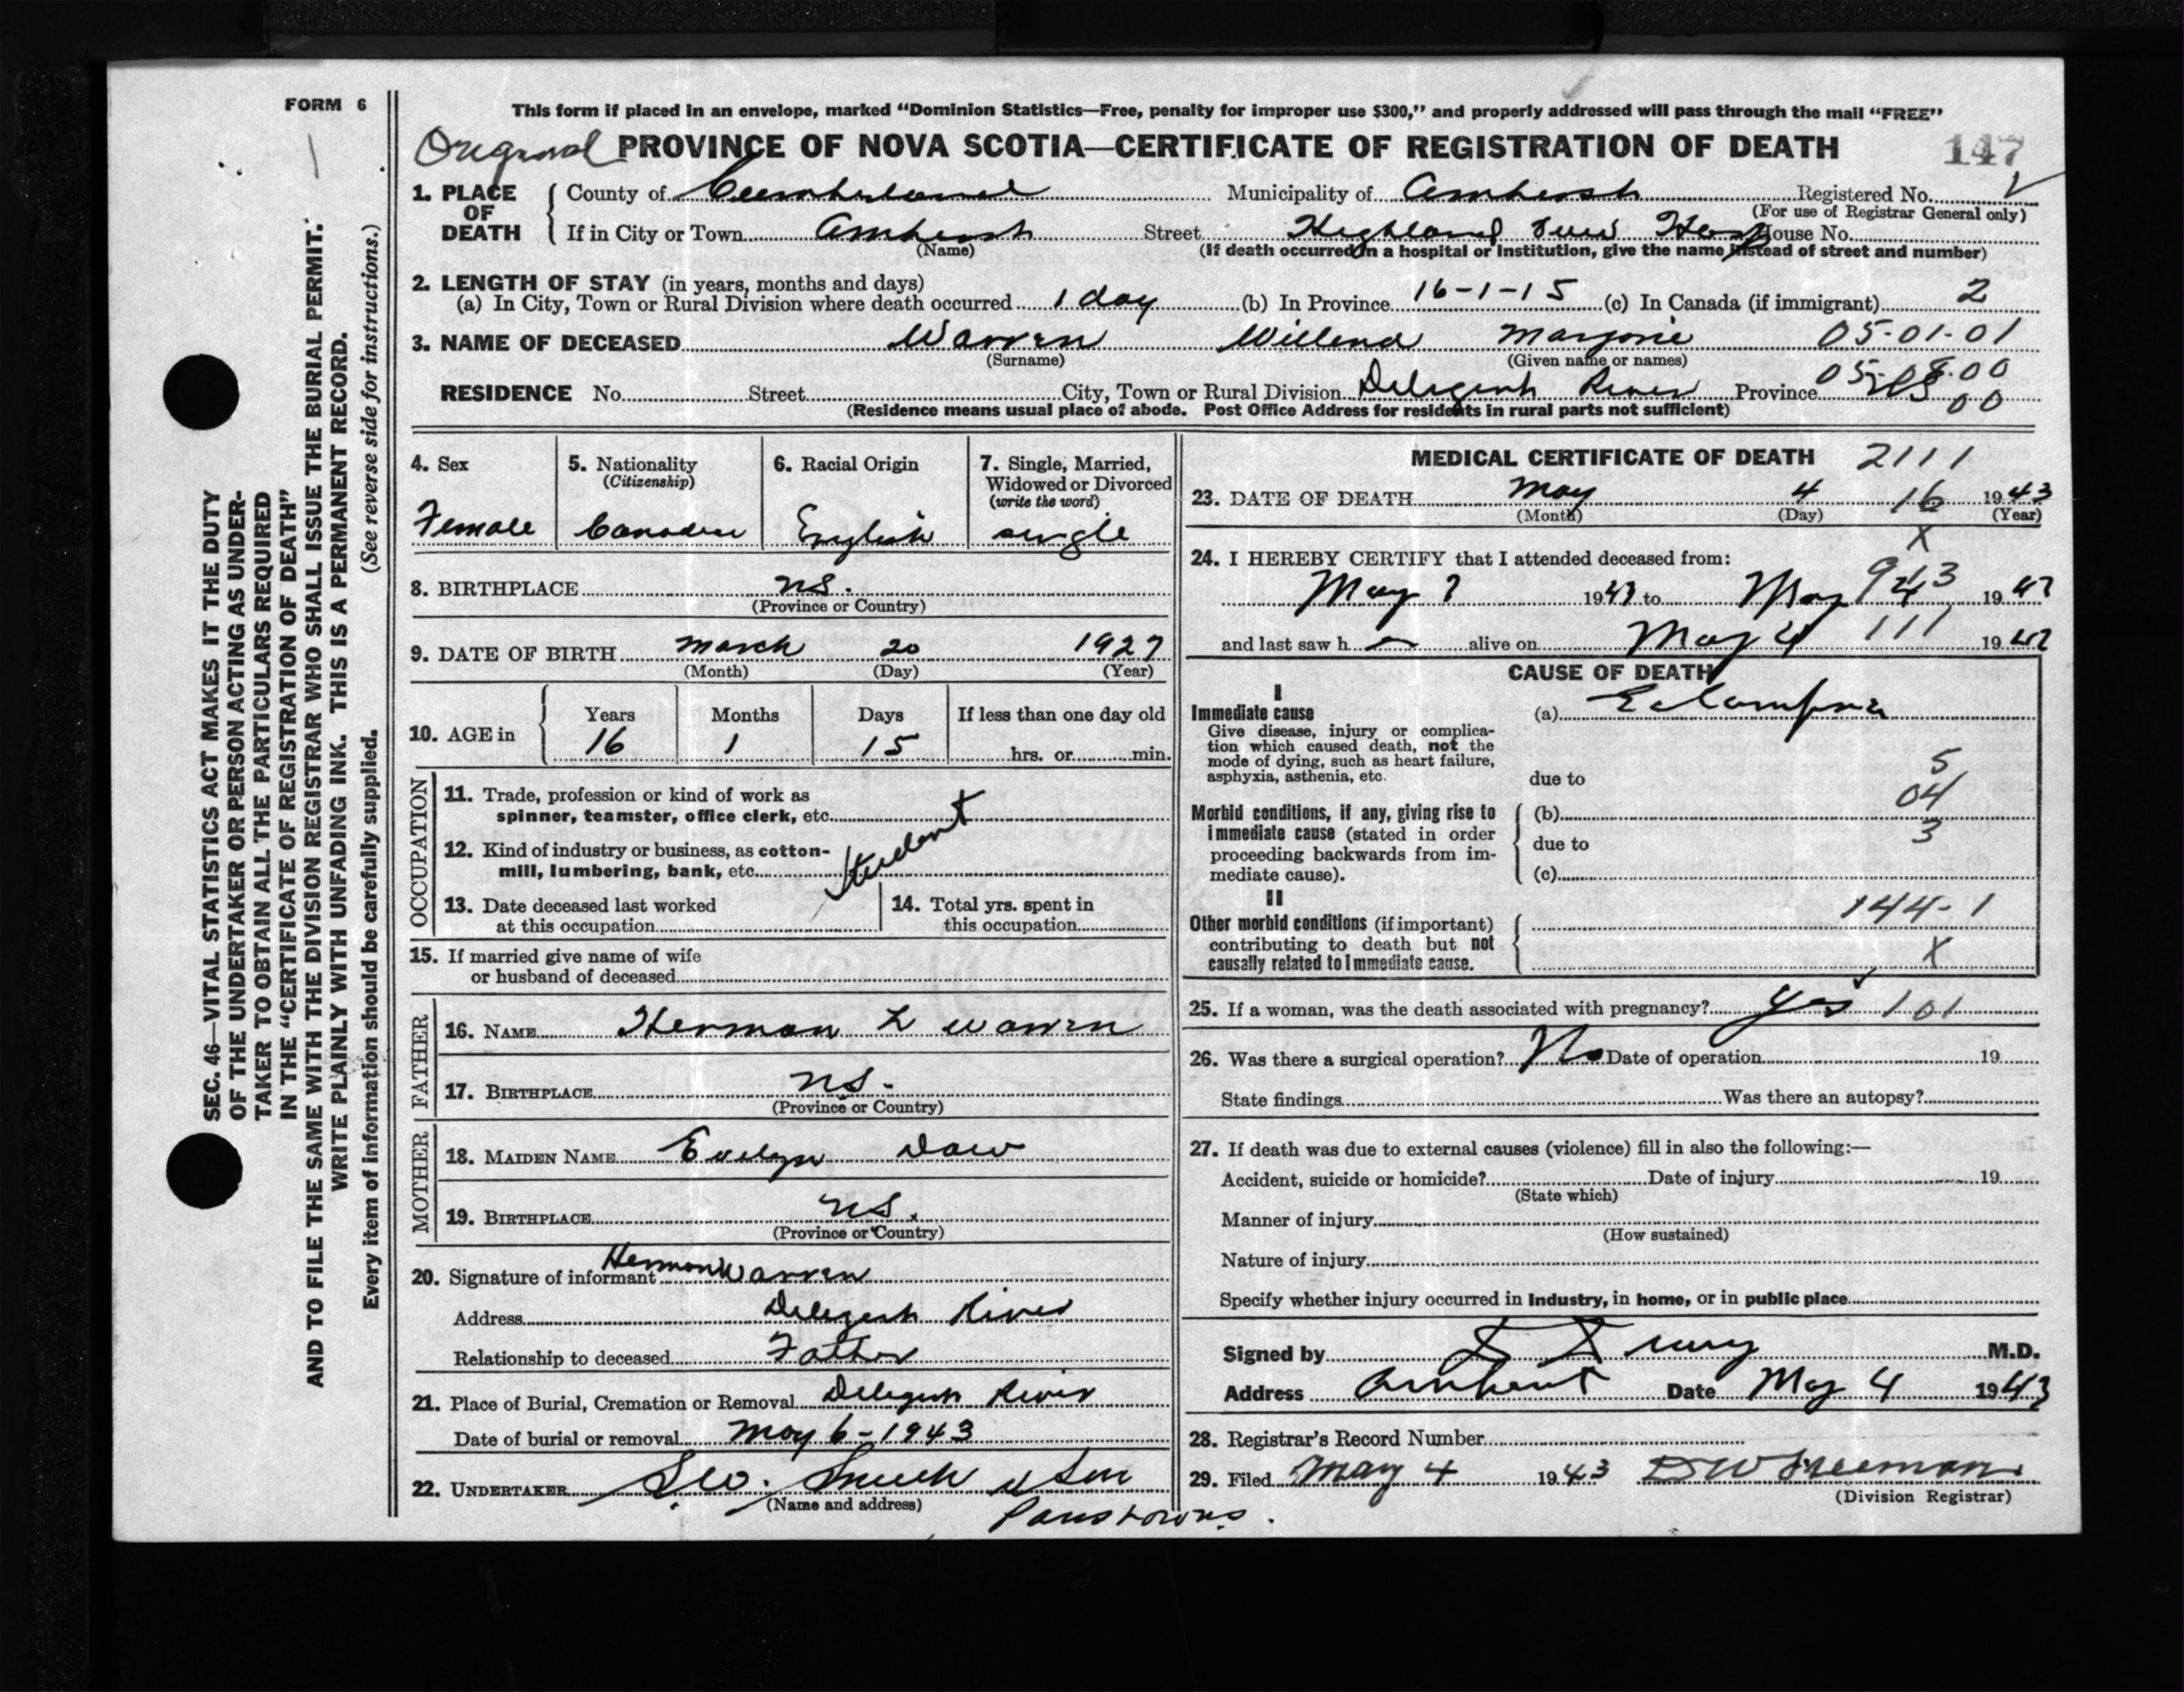 FORM 6
This form if placed in an envelope, marked “Dominion Statistics—Free, penalty for improper use $300,” and properly addressed will pass through the mail “FREE”
Original PROVINCE OF NOVA SCOTIA—CERTIFICATE OF REGISTRATION OF DEATH 147
1. PLACE OF DEATH County of Cumberland Municipality of Amherst Registered No.
(For use of Registrar General only)
If in City or Town Amherst Street Highland View Hosp House No.
(Name) (If death occurred in a hospital or institution, give the name instead of street and number)
2. LENGTH OF STAY (in years, months and days)
(a) In City, Town or Rural Division where death occurred 1 day (b) In Province 16-1-15 (c) In Canada (if immigrant) 2
3. NAME OF DECEASED Warren Marjorie 05-01-01
(Surname) (Given name or names)
RESIDENCE No. Street City, Town or Rural Division Deligent River Province 05-08-00
(Residence means usual place of abode. Post Office Address for residents in rural parts not sufficient) 00
4. Sex 5. Nationality 6. Racial Origin 7. Single, Married,
(Citizenship) Widowed or Divorced
(write the word)
Female Canadian English single
8. BIRTHPLACE NS.
(Province or Country)
9. DATE OF BIRTH March 20 1927
(Month) (Day) (Year)
10. AGE in Years Months Days If less than one day old
16 1 15 hrs. or min.
OCCUPATION
11. Trade, profession or kind of work as
spinner, teamster, office clerk, etc.
Student
12. Kind of industry or business, as cotton-
mill, lumbering, bank, etc.
13. Date deceased last worked 14. Total yrs. spent in
at this occupation this occupation
15. If married give name of wife
or husband of deceased
FATHER
16. NAME Herman L Warren
17. BIRTHPLACE NS.
(Province or Country)
MOTHER
18. MAIDEN NAME Evelyn Dow
19. BIRTHPLACE NS.
(Province or Country)
20. Signature of informant Herman Warren
Address Deligent River
Relationship to deceased Father
21. Place of Burial, Cremation or Removal Deligent River
Date of burial or removal May 6-1943
22. UNDERTAKER Geo. Smith & Son
(Name and address)
Parrsboro NS.
MEDICAL CERTIFICATE OF DEATH 2111
23. DATE OF DEATH May 4 16 1943
(Month) (Day) (Year)
X
24. I HEREBY CERTIFY that I attended deceased from:
May 1943 to May 4 1943
and last saw h alive on May 4 111 1943
CAUSE OF DEATH
I
Immediate cause (a) Eclampsia
Give disease, injury or complica-
tion which caused death, not the
mode of dying, such as heart failure,
asphyxia, asthenia, etc. due to 5
04
Morbid conditions, if any, giving rise to (b) 3
immediate cause (stated in order due to
proceeding backwards from im-
mediate cause). (c)
II
144-1
Other morbid conditions (if important)
contributing to death but not X
causally related to immediate cause.
25. If a woman, was the death associated with pregnancy? Yes 101
26. Was there a surgical operation? No Date of operation 19
State findings Was there an autopsy?
27. If death was due to external causes (violence) fill in also the following:—
Accident, suicide or homicide? Date of injury 19
(State which)
Manner of injury
(How sustained)
Nature of injury
Specify whether injury occurred in Industry, in home, or in public place
Signed by M.D.
Address Amherst Date May 4 1943
28. Registrar's Record Number
29. Filed May 4 1943 D W Freeman
(Division Registrar)
SEC. 46—VITAL STATISTICS ACT MAKES IT THE DUTY
OF THE UNDERTAKER OR PERSON ACTING AS UNDER-
TAKER TO OBTAIN ALL THE PARTICULARS REQUIRED
IN THE “CERTIFICATE OF REGISTRATION OF DEATH”
AND TO FILE THE SAME WITH THE DIVISION REGISTRAR WHO SHALL ISSUE THE BURIAL PERMIT.
WRITE PLAINLY WITH UNFADING INK. THIS IS A PERMANENT RECORD.
Every item of information should be carefully supplied. (See reverse side for instructions.)